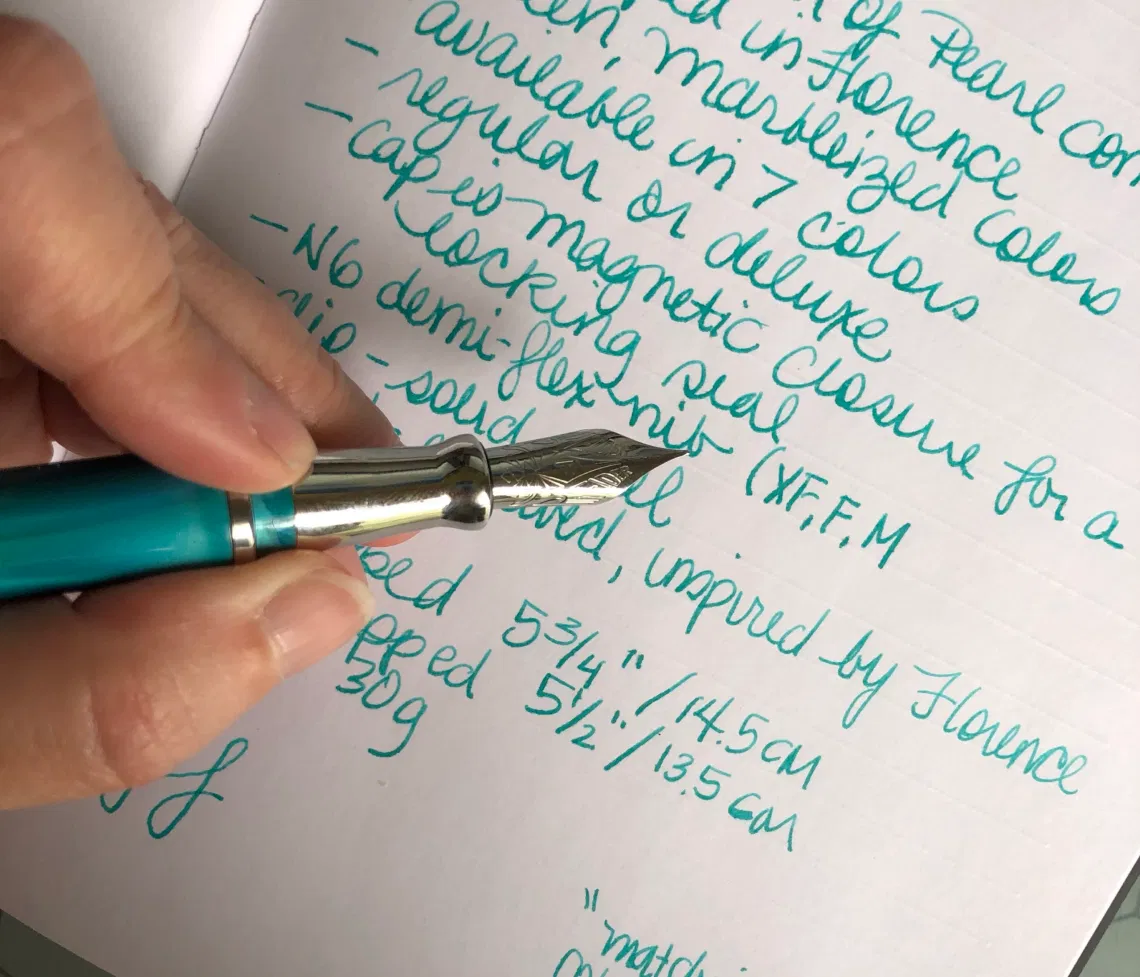 of Pearl
in Florence
marbleized colors
available in 7 colors
- regular or deluxe
- cap is magnetic closure for a
locking seal
- N6 demi-flex nib (XF, F, M
- solid
inspired by Florence
5 3/4" / 14.5 cm
5 1/2" / 13.5 cm
30g
"